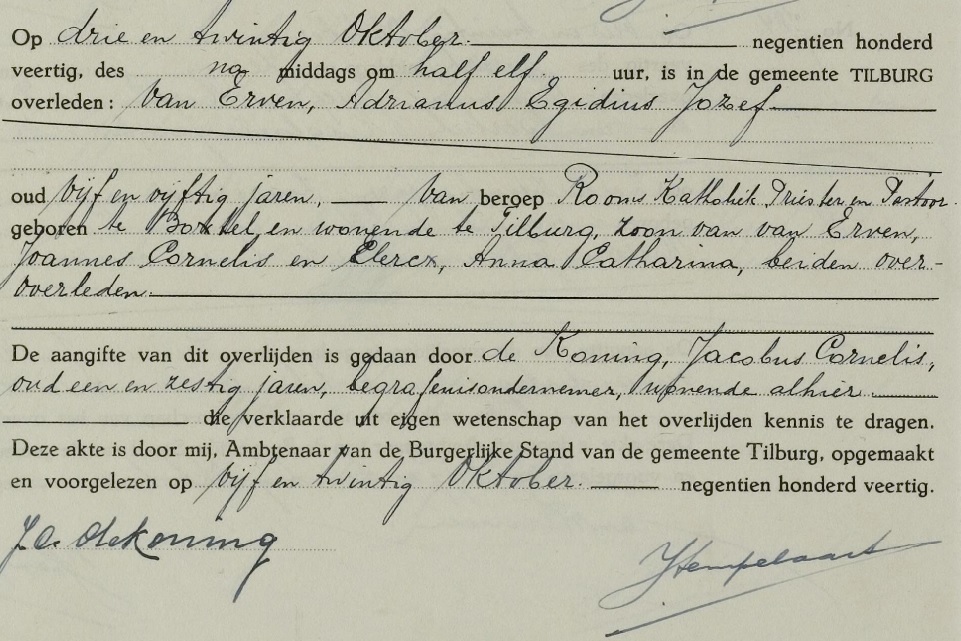 Op drie en twintig Oktober. negentien honderd
veertig, des na middags om half elf. uur, is in de gemeente TILBURG
overleden: van Erven, Adrianus Egidius Jozef
oud vijf en vijftig jaren, van beroep Rooms Katholiek Priester en Pastoor.
geboren te Boxtel, en wonende te Tilburg, zoon van van Erven,
Joannes Cornelis en Elercx, Anna Catharina, beiden over-
overleden.
De aangifte van dit overlijden is gedaan door de Koning, Jacobus Cornelis,
oud een en zestig jaren, begrafenisondernemer, wonende alhier
die verklaarde uit eigen wetenschap van het overlijden kennis te dragen.
Deze akte is door mij, Ambtenaar van de Burgerlijke Stand van de gemeente Tilburg, opgemaakt
en voorgelezen op vijf en twintig Oktober. negentien honderd veertig.
J.C. de Koning